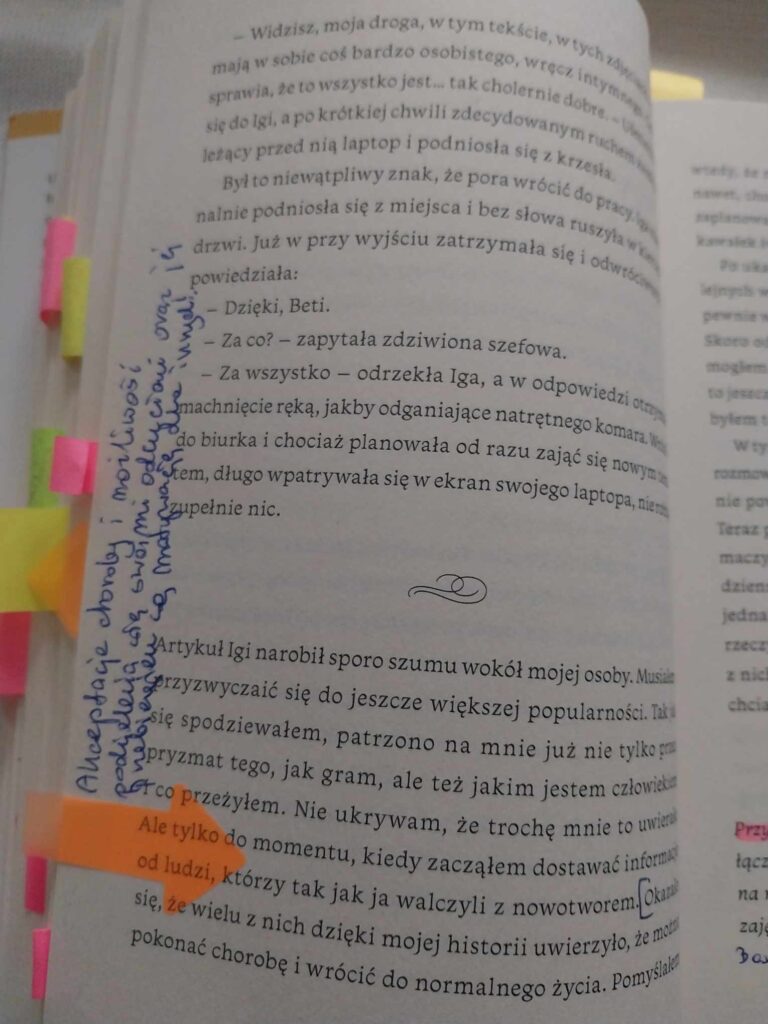 – Widzisz, moja droga, w tym tekście, w tych
mają w sobie coś bardzo osobistego, wręcz
sprawia, że to wszystko jest... tak cholernie dobre. –
się do Igi, a po krótkiej chwili zdecydowanym ruchem
leżący przed nią laptop i podniosła się z krzesła.
Był to niewątpliwy znak, że pora wrócić do pracy.
nalnie podniosła się z miejsca i bez słowa ruszyła w
drzwi. Już w przy wyjściu zatrzymała się i
powiedziała:
– Dzięki, Beti.
– Za co? – zapytała zdziwiona szefowa.
– Za wszystko – odrzekła Iga, a w odpowiedzi
machnięcie ręką, jakby odganiające natrętnego komara.
do biurka i chociaż planowała od razu zająć się nowym
tem, długo wpatrywała się w ekran swojego laptopa, nie
zupełnie nic.
Artykuł Igi narobił sporo szumu wokół mojej osoby.
przyzwyczaić się do jeszcze większej popularności. Tak
się spodziewałem, patrzono na mnie już nie tylko
pryzmat tego, jak gram, ale też jakim jestem
i co przeżyłem. Nie ukrywam, że trochę mnie to
Ale tylko do momentu, kiedy zacząłem dostawać
od ludzi, którzy tak jak ja walczyli z nowotworem.
się, że wielu z nich dzięki mojej historii uwierzyło, że
pokonać chorobę i wrócić do normalnego życia. Pomyślałem
Akceptacje choroby i możliwość
się swoimi odczuciami oraz jej
motywacją dla innych.
wtedy, że
nawet,
kawałek
Po
lejnych w
pewnie
Skoro
mogłem
to jeszcze
byłem
W
nie
Teraz
jedna
rzeczy
z nich
chcia
Przy
łącz
na